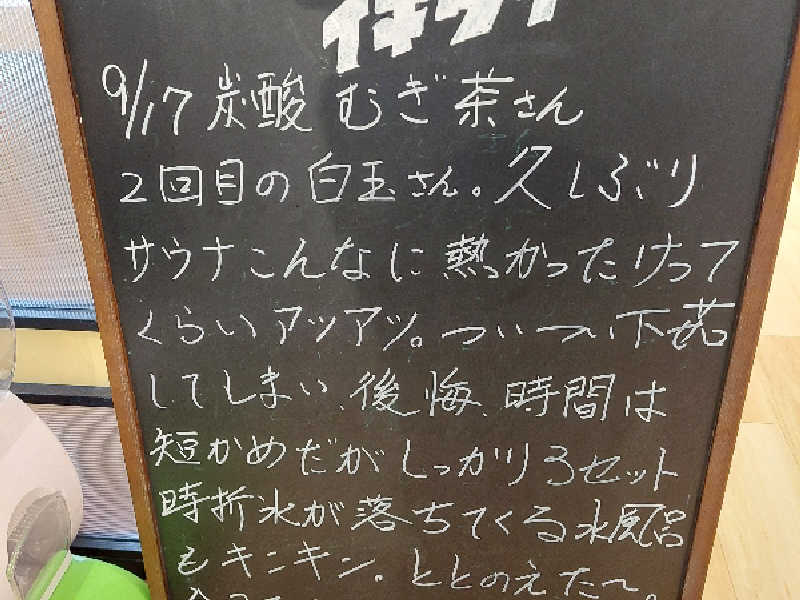 イキタイ
9/17 炭酸むぎ茶さん
2回目の白玉さん。久しぶり
サウナこんなに熱かったけって
くらいアツアツ。ついつい下茹
してしまい、後悔、時間は
短かめだがしっかり3セット
時折氷が落ちてくる水風呂
もキンキン。ととのえた〜。